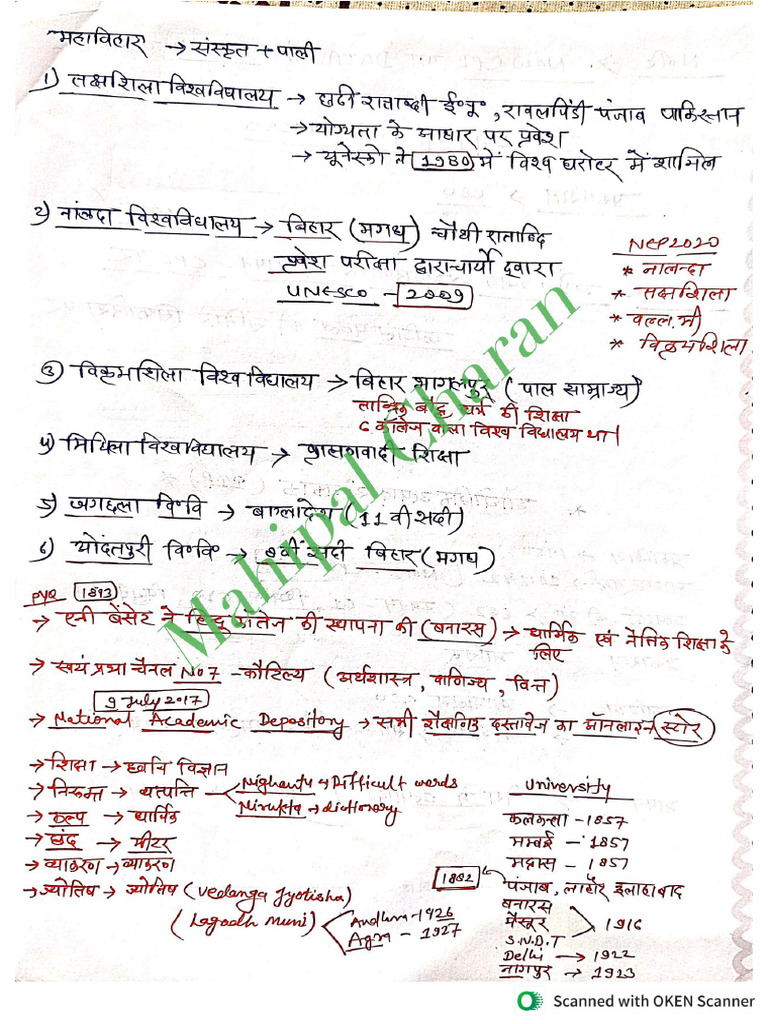 महाविहार → संस्कृत + पाली
1) तक्षशिला विश्वविद्यालय → छठी शताब्दी ई॰पू॰, रावलपिंडी पंजाब पाकिस्तान
→ योग्यता के आधार पर प्रवेश
→ यूनेस्को ने 1980 में विश्व धरोहर में शामिल
2) नालन्दा विश्वविद्यालय → बिहार (मगध) चौथी शताब्दि
प्रवेश परीक्षा द्वाराचार्यो द्वारा
UNESCO - 2009
NEP2020
* नालन्दा
* तक्षशिला
* वल्लभी
* विक्रमशिला
3) विक्रमशिला विश्वविद्यालय → बिहार भागलपुर (पाल साम्राज्य)
तान्त्रिक बौद्ध धर्म की शिक्षा
6 कॉलेज वाला विश्व विद्यालय था।
4) मिथिला विश्वविद्यालय → ब्राह्मणवादी शिक्षा
5) जगद्दला वि॰वि → बांग्लादेश (11 वी सदी)
6) ओदंतपुरी वि॰वि॰ → 8वीं सदी बिहार (मगध)
PYQ 1893
→ एनी बेसेंट ने हिन्दु कॉलेज की स्थापना की (बनारस) → धार्मिक एवं नैतिक शिक्षा के लिए
→ स्वयं प्रभा चैनल No 7 - कौटिल्य (अर्थशास्त्र, वाणिज्य, वित्त)
9 July 2017
→ National Academic Depository → सभी शैक्षणिक दस्तावेज का ऑनलाइन स्टोर
→ शिक्षा → ध्वनि विज्ञान
→ निरुक्त → उत्पत्ति
Nighantu → Difficult words
Nirukta → dictionary
→ कल्प → धार्मिक
→ छंद → मीटर
→ व्याकरण → व्याकरण
→ ज्योतिष → ज्योतिष (Vedanga Jyotisha)
(Lagadh muni)
Andhra - 1926
Agra - 1927
University
कलकत्ता - 1857
मम्बई - 1857
मद्रास - 1857
1882
पंजाब, लाहौर इलाहाबाद
बनारस
मैसूर
1916
S.N.D.T
Delhi → 1922
नागपुर → 1923
Mahipal Charan
Scanned with OKEN Scanner